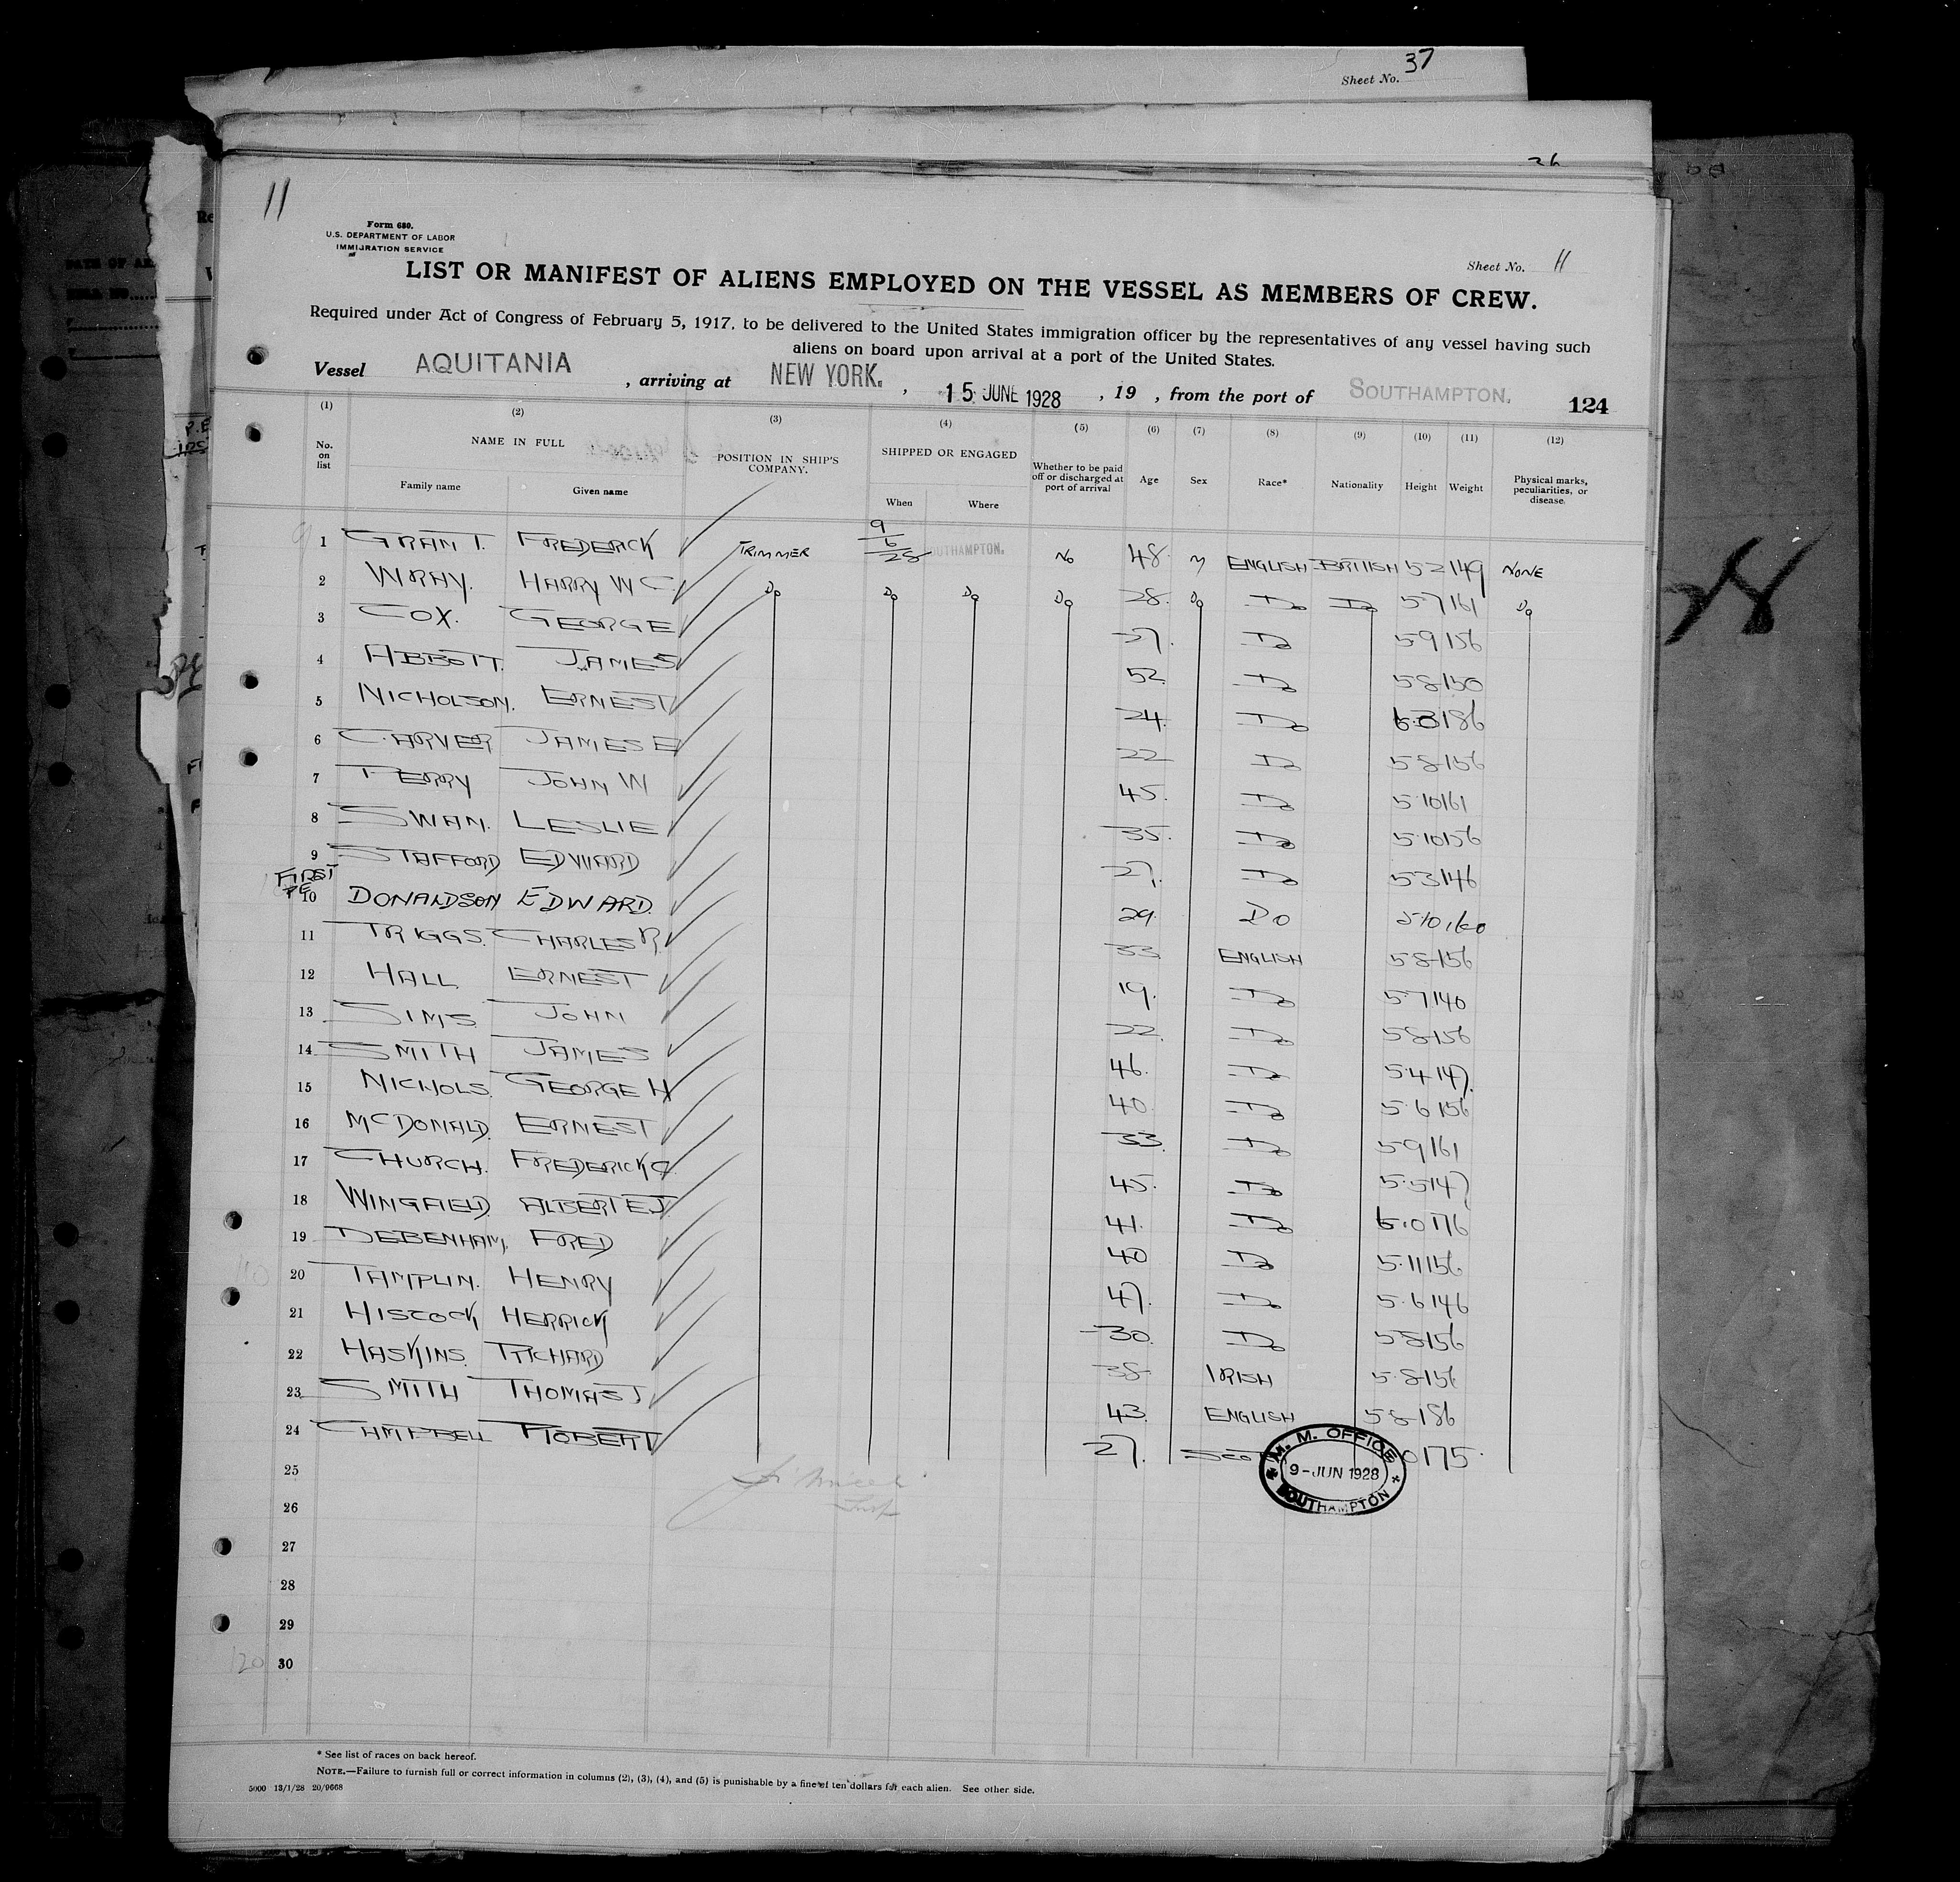 Sheet No. 37
26
11
Form 680.
U.S. DEPARTMENT OF LABOR
IMMIGRATION SERVICE
Sheet No. 11
LIST OR MANIFEST OF ALIENS EMPLOYED ON THE VESSEL AS MEMBERS OF CREW.
Required under Act of Congress of February 5, 1917, to be delivered to the United States immigration officer by the representatives of any vessel having such
aliens on board upon arrival at a port of the United States.
Vessel AQUITANIA , arriving at NEW YORK. , 15 JUNE 1928 , 19 , from the port of SOUTHAMPTON. 124
(1) (2) (3) (4) (5) (6) (7) (8) (9) (10) (11) (12)
No. on list NAME IN FULL Family name Given name POSITION IN SHIP'S COMPANY. SHIPPED OR ENGAGED When Where Whether to be paid off or discharged at port of arrival Age Sex Race* Nationality Height Weight Physical marks, peculiarities, or disease.
1 GRANT. FREDERICK TRIMMER 9/6/28 SOUTHAMPTON. No 48 M ENGLISH BRITISH 5 2 149 NONE
2 WRAY. HARRY W C Do Do Do Do 28. Do Do Do 5 7 161 Do
3 COX. GEORGE 37. Do 5 9 156
4 ABBOTT. JAMES 52 Do 5 8 150
5 NICHOLSON. ERNEST 24. Do 6.3 186
6 CARVER JAMES E 22 Do 5 8 156
7 PERRY JOHN W 45. Do 5 10 161
8 SWAN. LESLIE 35. Do 5 10 156
9 STAFFORD EDWARD 27. Do 5 3 146
FIRST
10 DONALDSON EDWARD. 29. DO 5 10 160
11 TRIGGS. CHARLES R. 33 ENGLISH 5 8 156
12 HALL ERNEST 19. Do 5 7 140
13 SIMS JOHN 22. Do 5 8 156
14 SMITH JAMES 46. Do 5 4 147.
15 NICHOLS. GEORGE H 40. Do 5 6 156
16 McDONALD. ERNEST 33. Do 5 9 161
17 CHURCH. FREDERICK C. 45. Do 5 5 147
18 WINGFIELD. ALBERT E J. 41. Do 6.0 176
19 DEBENHAM. FRED 40 Do 5.11 156
20 TAMPLIN. HENRY 47. Do 5.6 146
21 HISCOCK HERRICK 30. Do 5 8 156
22 HASKINS. RICHARD 38 IRISH 5.8 156
23 SMITH THOMAS J 43. ENGLISH 5 8 186
24 CAMPBELL ROBERT 27. 175.
M. M. OFFICE
9-JUN 1928
SOUTHAMPTON
25
26
27
28
29
120 30
* See list of races on back hereof.
NOTE.—Failure to furnish full or correct information in columns (2), (3), (4), and (5) is punishable by a fine of ten dollars for each alien. See other side.
5000 13/1/28 20/9668